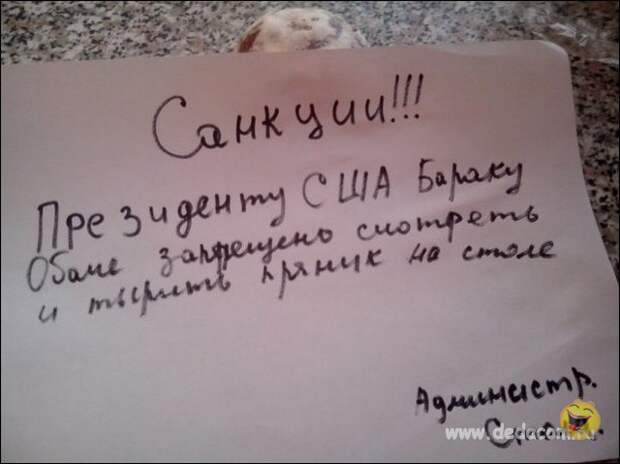 Санкции!!!
Президенту США Бараку
Обаме запрещено смотреть
и тырить пряник на столе
Администр.
www.dedacom.ru